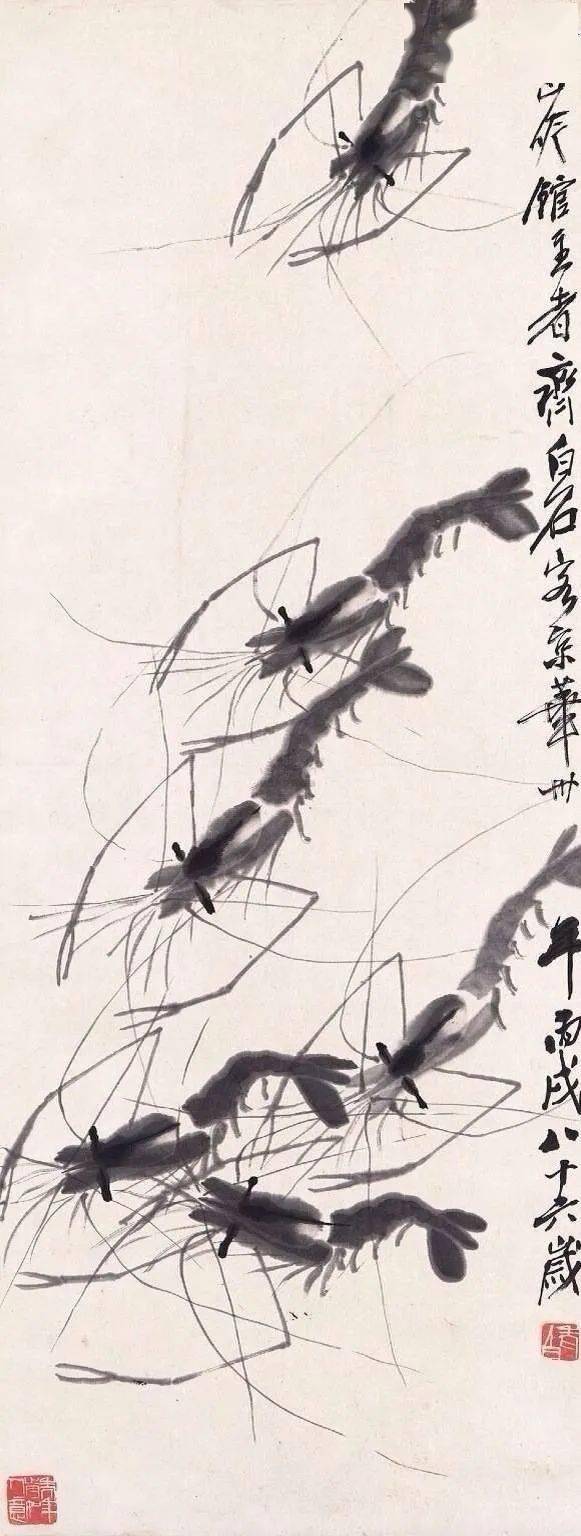 山吟館主者齊白石客京華卅年丙戌八十六歲